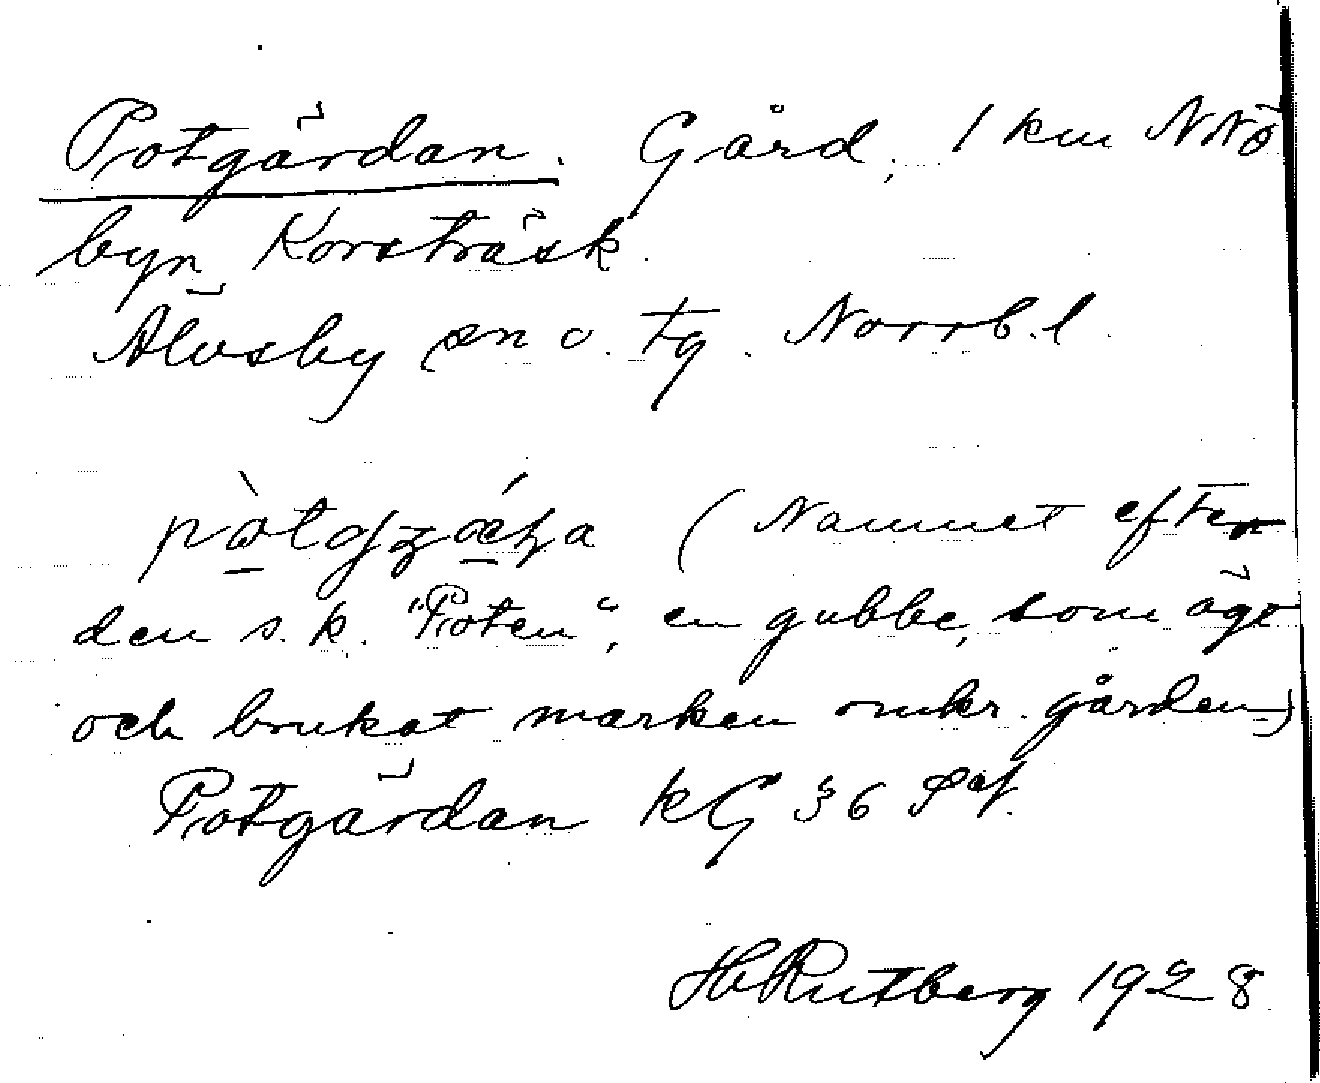 Potgärdan. Gård, 1 km NNÖ
byn Korsträsk.
Älvsby sn o. tg. Norrb. l.
(Namnet efter
den s. k. "Poten", en gubbe, som ägt
och brukat marken omkr. gården)
Potgärdan kG 36
H Rutberg 1928